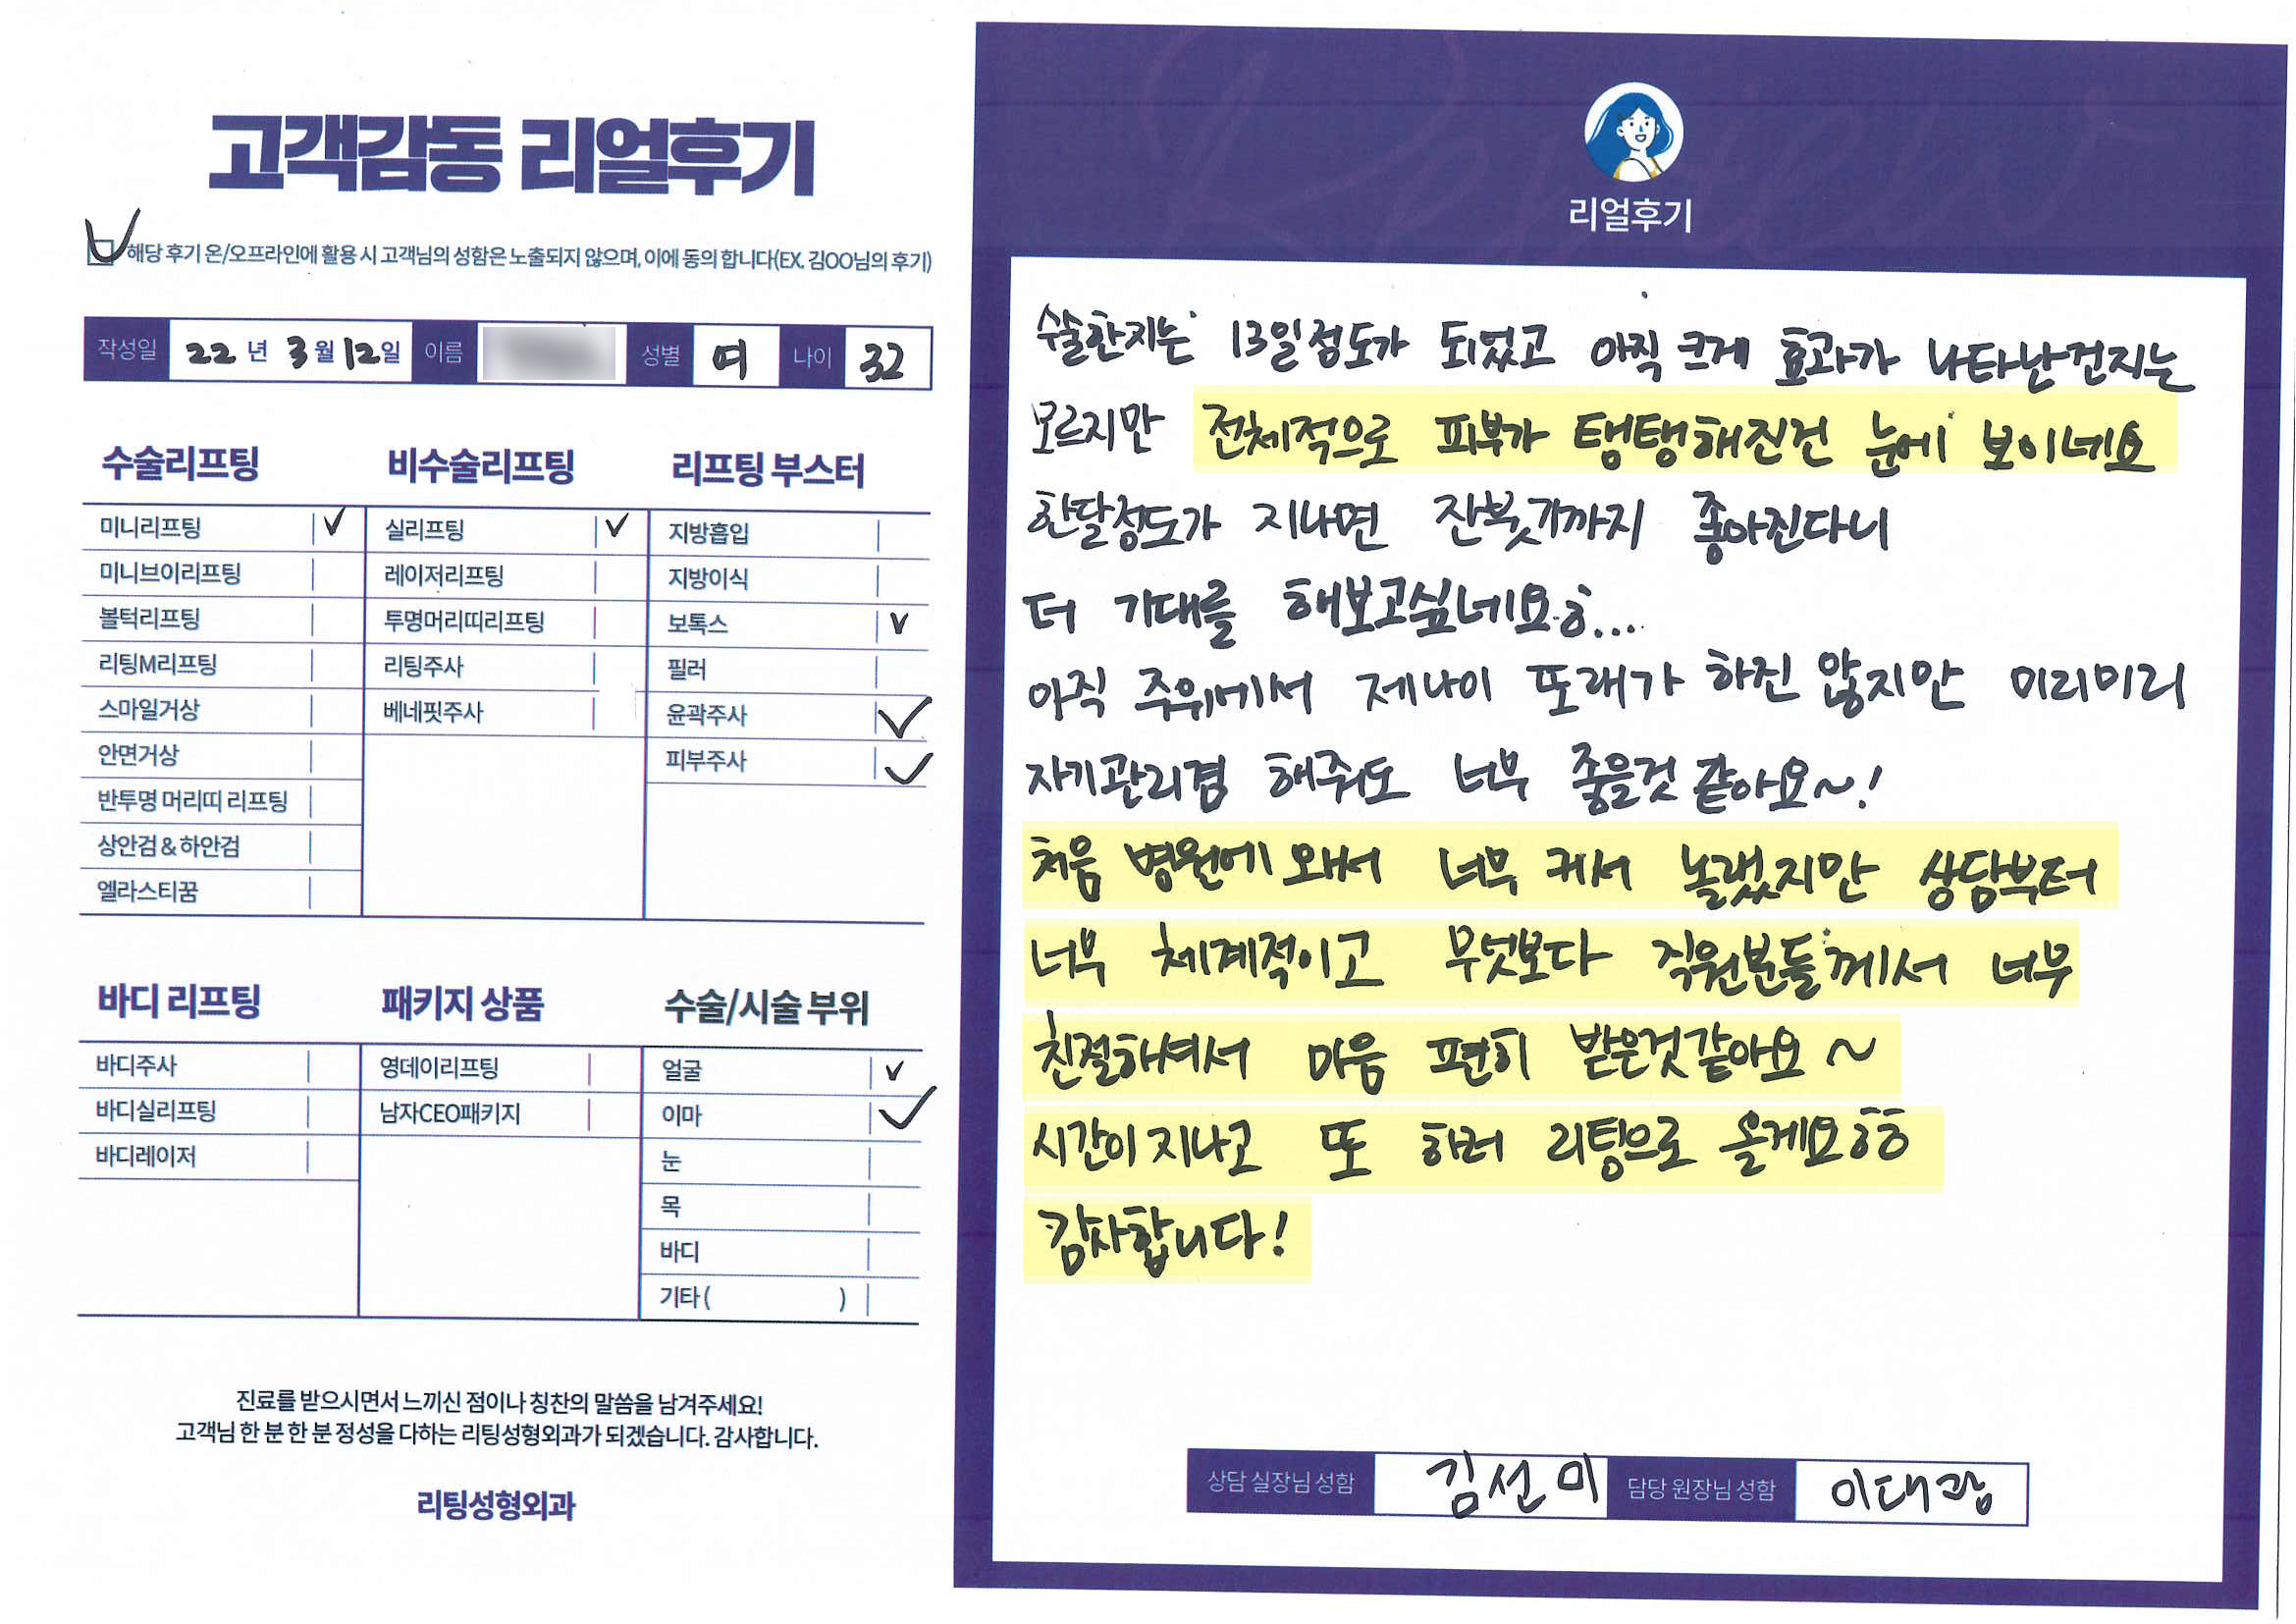 고객감동 리얼후기
해당 후기 온/오프라인에 활용 시 고객님의 성함은 노출되지 않으며, 이에 동의 합니다(EX. 김OO님의 후기)
작성일 22년 3월 12일 이름 성별 여 나이 32
수술리프팅
미니리프팅 ✓
미니브이리프팅
볼턱리프팅
리팅M리프팅
스마일거상
안면거상
반투명 머리띠 리프팅
상안검 & 하안검
엘라스티꿈
비수술리프팅
실리프팅 ✓
레이저리프팅
투명머리띠리프팅
리팅주사
베네핏주사
리프팅 부스터
지방흡입
지방이식
보톡스 ✓
필러
윤곽주사 ✓
피부주사 ✓
바디 리프팅
바디주사
바디실리프팅
바디레이저
패키지 상품
영데이리프팅
남자CEO패키지
수술/시술 부위
얼굴 ✓
이마 ✓
눈
목
바디
기타 ( )
진료를 받으시면서 느끼신 점이나 칭찬의 말씀을 남겨주세요!
고객님 한 분 한 분 정성을 다하는 리팅성형외과가 되겠습니다. 감사합니다.
리팅성형외과
리얼후기
수술한지는 13일정도가 되었고 아직 크게 효과가 나타난건지는
모르지만 전체적으로 피부가 탱탱해진건 눈에 보이네요
한달정도가 지나면 잔붓기까지 좋아진다니
더 기대를 해보고싶네요ㅎ...
아직 주위에서 제나이 또래가 하진 않지만 미리미리
자기관리겸 해줘도 너무 좋을것 같아요~!
처음 병원에 와서 너무 커서 놀랬지만 상담부터
너무 체계적이고 무엇보다 직원분들께서 너무
친절해셔서 마음 편히 받은것같아요~
시간이 지나고 또 하러 리팅으로 올게요ㅎㅎ
감사합니다!
상담 실장님 성함 김선미 담당 원장님 성함 이대광